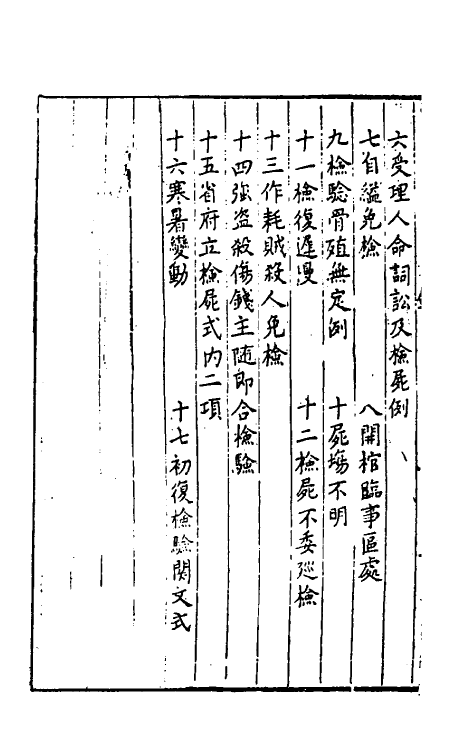 六受理人命詞訟及檢屍例
七自縊免檢　八開棺臨事區處
九檢驗骨殖無定例　十屍塲不明
十一檢復遲慢　十二檢屍不委廵檢
十三作耗賊殺人免檢
十四強盗殺傷錢主随即合檢驗
十五省府立檢屍式内二項
十六寒暑變動　十七初復檢驗関文式